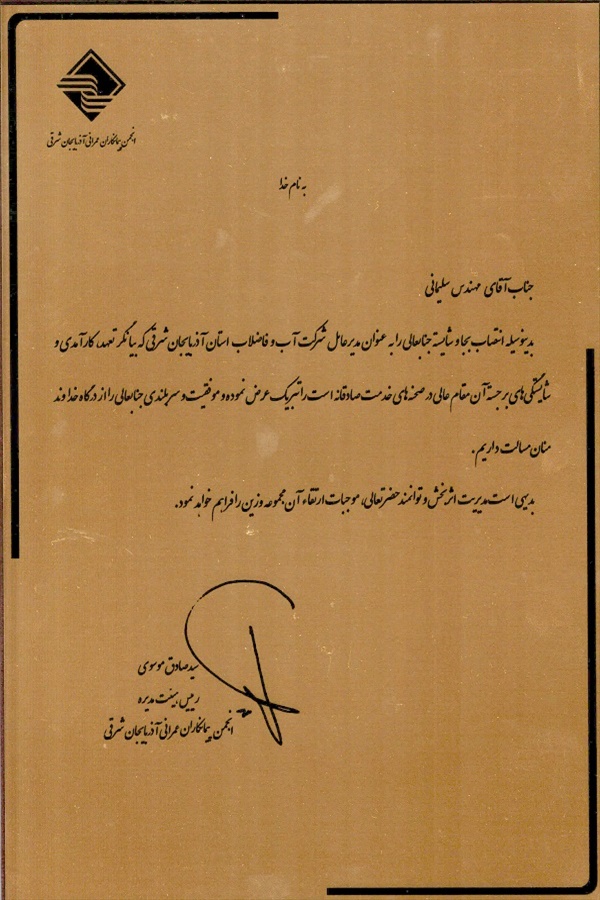 انجمن پیمانکاران عمرانی آذربایجان شرقی
به نام خدا
جناب آقای مهندس سلیمانی
بدینوسیله انتصاب بجا و شایسته جنابعالی را به عنوان مدیر عامل شرکت آب و فاضلاب استان آذربایجان شرقی که بیانگر تعهد، کارآمدی و
شایستگی های برجسته آن مقام عالی در صحنه های خدمت صادقانه است را تبریک عرض نموده و موفقیت و سربلندی جنابعالی را از درگاه خداوند
منان مسالت داریم.
بدیهی است مدیریت اثربخش و توانمند حضرتعالی، موجبات ارتقاء آن مجموعه وزین را فراهم خواهد نمود.
سید صادق موسوی
رییس هیئت مدیره
انجمن پیمانکاران عمرانی آذربایجان شرقی